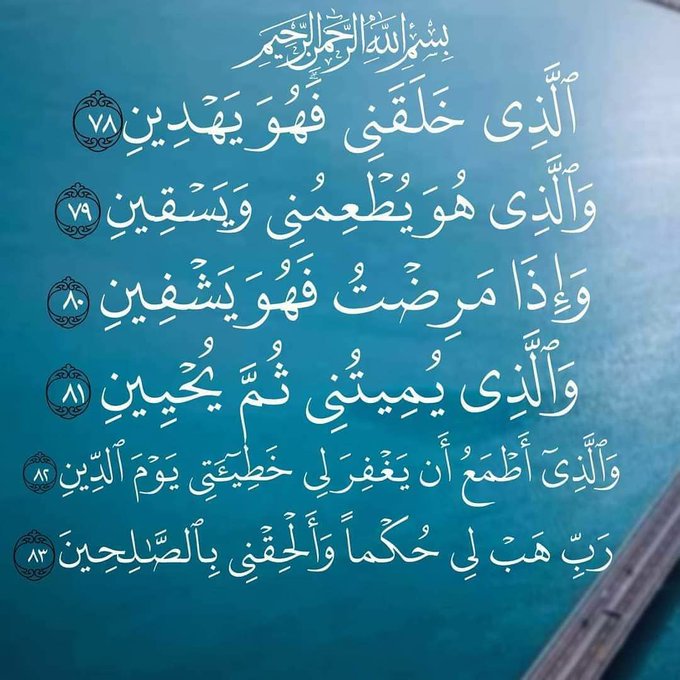 بِسْمِ اللَّهِ الرَّحْمَٰنِ الرَّحِيمِ
ٱلَّذِى خَلَقَنِى فَهُوَ يَهْدِينِ ٧٨
وَٱلَّذِى هُوَ يُطْعِمُنِى وَيَسْقِينِ ٧٩
وَإِذَا مَرِضْتُ فَهُوَ يَشْفِينِ ٨٠
وَٱلَّذِى يُمِيتُنِى ثُمَّ يُحْيِينِ ٨١
وَٱلَّذِىٓ أَطْمَعُ أَن يَغْفِرَ لِى خَطِيٓـَٔتِى يَوْمَ ٱلدِّينِ ٨٢
رَبِّ هَبْ لِى حُكْماً وَأَلْحِقْنِى بِٱلصَّٰلِحِينَ ٨٣